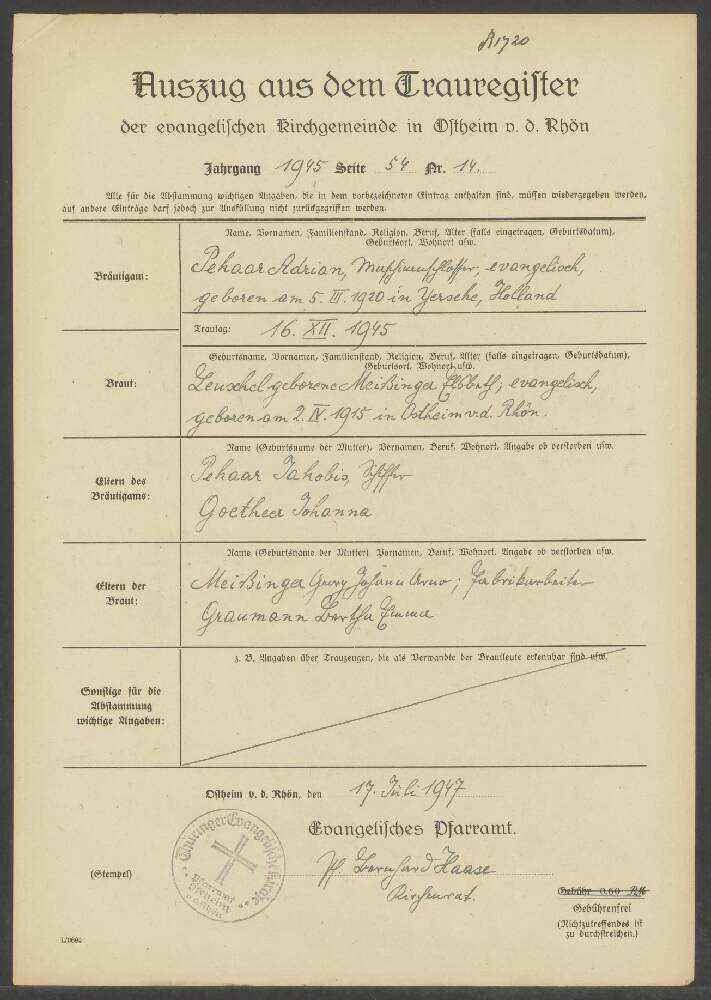 R1720
Auszug aus dem Trauregister
der evangelischen Kirchgemeinde in Ostheim v. d. Rhön
Jahrgang 1945 Seite 54 Nr. 14.
Alle für die Abstammung wichtigen Angaben, die in dem vorbezeichneten Eintrag enthalten sind, müssen wiedergegeben werden,
auf andere Einträge darf jedoch zur Ausfüllung nicht zurückgegriffen werden.
Name, Vornamen, Familienstand, Religion, Beruf, Alter (falls eingetragen, Geburtsdatum),
Geburtsort, Wohnort usw.
Bräutigam:
Pekaar Adrian, Maschinenschlosser, evangelisch,
geboren am 5. III. 1920 in Yerseke, Holland
Trautag: 16. XII. 1945
Geburtsname, Vornamen, Familienstand, Religion, Beruf, Alter (falls eingetragen, Geburtsdatum),
Geburtsort, Wohnort usw.
Braut:
Leuschel geborene Meißinger Elsbeth; evangelisch,
geboren am 2. IV. 1915 in Ostheim v.d. Rhön.
Name (Geburtsname der Mutter), Vornamen, Beruf, Wohnort, Angabe ob verstorben usw.
Eltern des
Bräutigams:
Pekaar Jakobis, Schiffer
Goetheer Johanna
Name (Geburtsname der Mutter) Vornamen, Beruf, Wohnort, Angabe ob verstorben usw.
Eltern der
Braut:
Meißinger Georg Johann Arno; Fabrikarbeiter
Graumann Bertha Emma
z. B. Angaben über Trauzeugen, die als Verwandte der Brautleute erkennbar sind usw.
Sonstige für die
Abstammung
wichtige Angaben:
Ostheim v. d. Rhön, den 17. Juli 1947
Evangelisches Pfarramt.
Thüringer Evangelische Kirche
Pfarramt
Ostheim
v.d.Rhön
(Stempel)
Pf. Bernhard Haase
Kirchenrat.
Gebühr 0.60 RM
Gebührenfrei
(Nichtzutreffendes ist
zu durchstreichen.)
L/0694